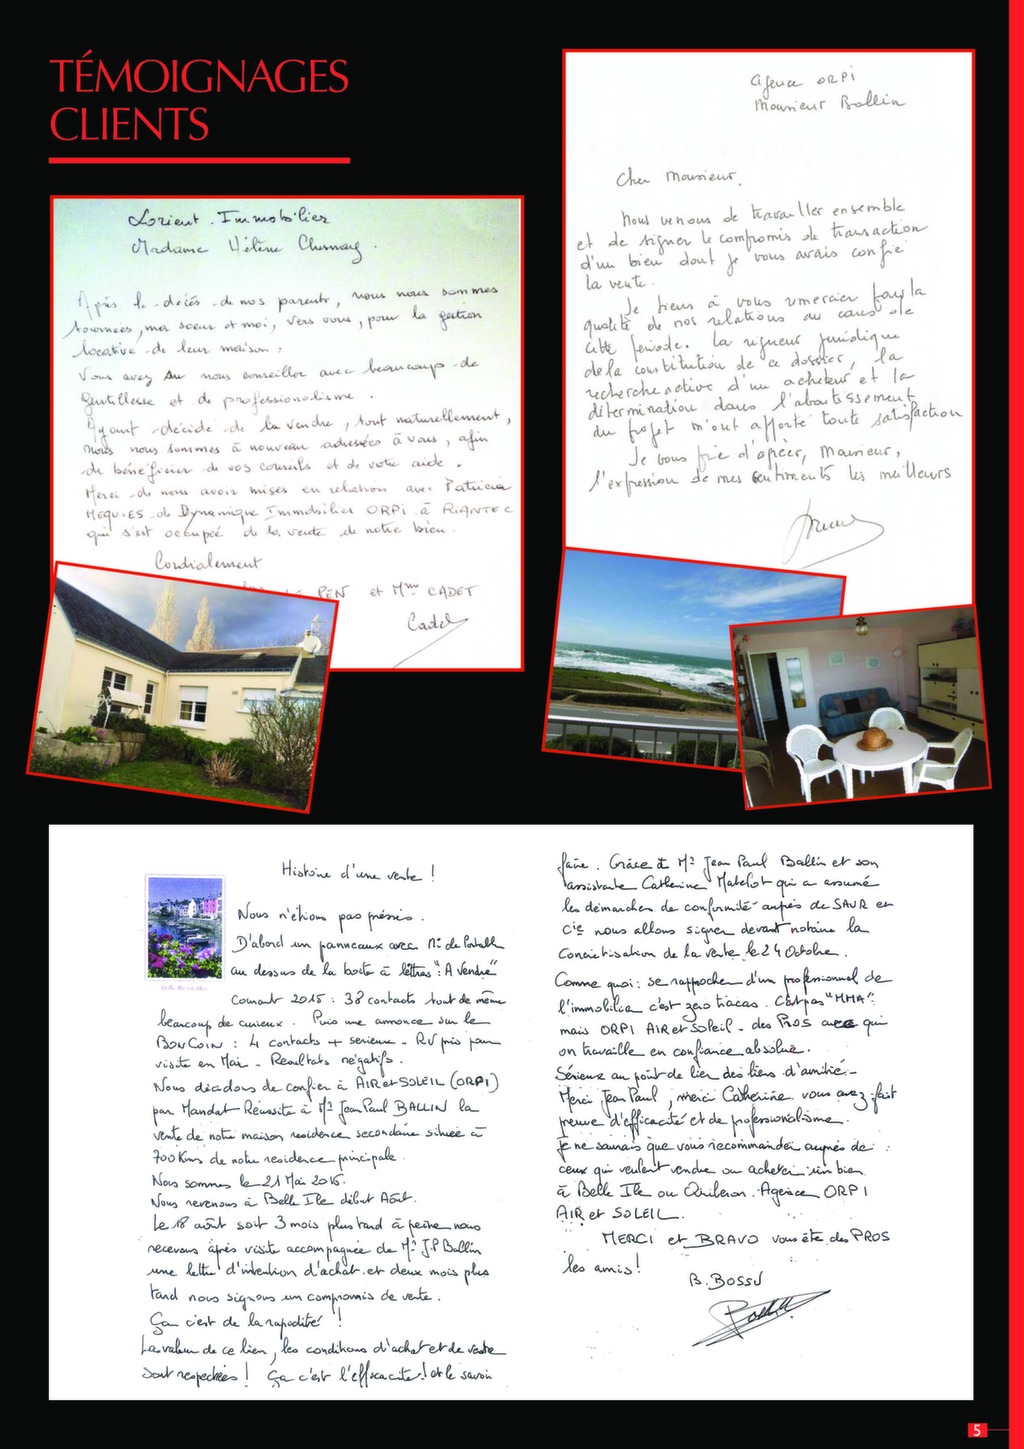 TÉMOIGNAGES
CLIENTS
Lorient Immobilier
Madame Hélène Chesnay.
Après le décès de nos parents, nous nous sommes
tournées, ma soeur et moi, vers vous, pour la gestion
locative de leur maison.
Vous avez su nous conseiller avec beaucoup de
gentillesse et de professionalisme.
Ayant décidé de la vendre, tout naturellement,
nous nous sommes à nouveau adressées à vous, afin
de bénéficier de vos conseils et de votre aide.
Merci de nous avoir mises en relation avec Patricia
MEQUIES de Dynamique Immobilier ORPI à RIANTEC
qui s'est occupée de la vente de notre bien.
Cordialement
LE PEN et Mme CADET
Cadet
Agence ORPI
Monsieur Ballin
Cher Monsieur,
Nous venons de travailler ensemble
et de signer le compromis de transaction
d'un bien dont je vous avais confié
la vente.
Je tiens à vous remercier pour la
qualité de nos relations au cours de
cette période. La rigueur juridique
de la constitution de ce dossier, la
recherche active d'un acheteur, et la
détermination dans l'aboutissement
du projet m'ont apporté toute satisfaction
Je vous prie d'agréer, Monsieur,
l'expression de mes sentiments les meilleurs
Histoire d'une vente !
Nous n'étions pas pressés.
D'abord un panneaux avec No de Portable
au dessus de la boite à lettres "A Vendre"
Belle-Ile-en-Mer
Courant 2015 : 38 contacts tout de même
beaucoup de curieux. Puis une annonce sur le
BONCOIN : 4 contacts + serieux - RV pris pour
visite en Mai - Resultats négatifs.
Nous décidons de confier à AIR et SOLEIL (ORPI)
par Mandat Réussite à Mr Jean Paul BALLIN la
vente de notre maison residence secondaire située à
700 Kms de notre residence principale.
Nous sommes le 21 Mai 2015.
Nous revenons à Belle Ile début Août.
Le 18 août soit 3 mois plus tard à peine nous
recevons après visite accompagnée de Mr J.P Ballin
une lettre d'intention d'achat et deux mois plus
tard nous signons un compromis de vente.
Ça c'est de la rapidité !
La valeur de ce bien, les conditions d'achat et de vente
sont respectées ! Ça c'est l'efficacité ! et le savoir
faire. Grâce à Mr Jean Paul Ballin et son
assistante Catherine Matelot qui a assuré
les démarches de conformité auprès de SAUR et
Cie nous allons signer devant notaire la
Concrétisation de la vente le 24 Octobre.
Comme quoi : se rapprocher d'un professionnel de
l'immobilier c'est zero tracas. C'est pas "MMA"
mais ORPI AIR et Soleil - des PROS avec qui
on travaille en confiance absolue.
Sérieux au point de lier des liens d'amitié -
Merci Jean Paul, merci Catherine vous avez fait
preuve d'efficacité et de professionalisme.
Je ne saurais que vous recommander auprès de
ceux qui veulent vendre ou acheter un bien
à Belle Ile ou Quiberon. Agence ORPI
AIR et SOLEIL.
MERCI et BRAVO vous êtes des PROS
les amis !
B. BOSSU
5